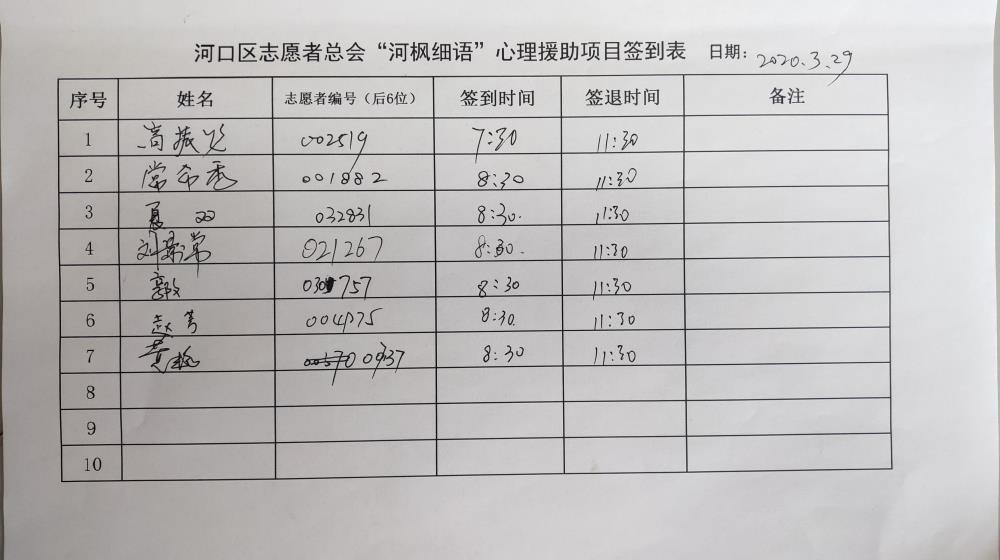 河口区志愿者总会“河枫细语”心理援助项目签到表 日期: 2020.3.29
序号 姓名 志愿者编号（后6位） 签到时间 签退时间 备注
1 高振 002519 7:30 11:30
2 常希秀 001882 8:30 11:30
3 夏双 032831 8:30. 11:30
4 刘 常 021267 8:30. 11:30
5 757 8:30 11:30
6 赵 8:30. 11:30
7 黄 8:30 11:30
8
9
10